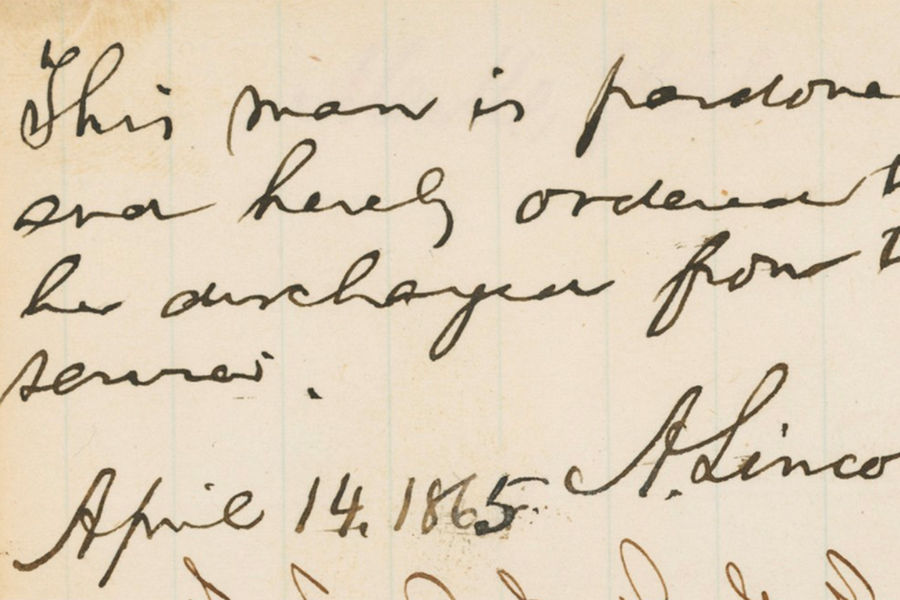 This man is pardone
and hereby ordered t
be discharged from t
service.
A. Linco
April 14. 1865.